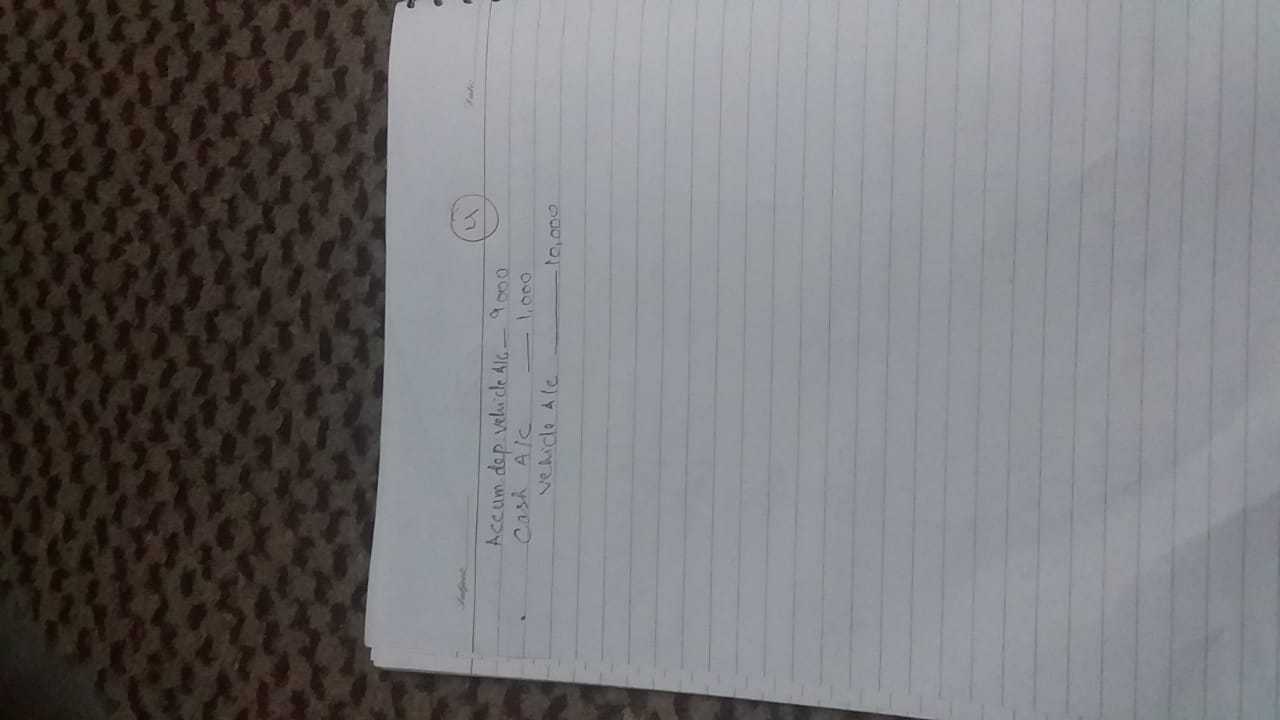 Subject Date
Accum dep vehicle A/c — 9000
Cash A/C — 1,000
Vehicle A/c — 10,000